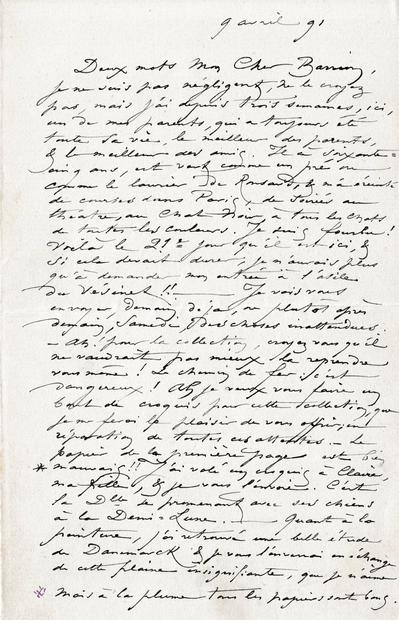 9 avril 91
Deux mots Mon Cher Barrion,
je ne suis pas négligent, ne le croyez
pas, mais j'ai depuis trois semaines, ici,
un de mes parents, qui a toujours été
toute sa vie, le meilleur des parents,
& le meilleur des amis. Il a soixante-
cinq ans, est vert comme un pré ou
comme le laurier de Ronsard, & m'a éreinté
de courses dans Paris, de soirées au
théâtre, au Chat Noir, à tous les chats
de toutes les couleurs. Je suis fourbu !
Voilà le 21e jour qu'il est ici, &
si cela devait durer, je n'aurais plus
qu'à demander mon entrée à l'asile
du Vésinet !! — Je vais vous
envoyer, demain déjà, ou plutôt après
demain, Samedi, des choses inattendues.
— Ah ! pour la collection, croyez vous qu'il
ne vaudrait pas mieux la reprendre
vous même ! Le chemin de fer c'est
dangereux ! Ah je veux vous faire un
bout de croquis pour cette collection, que
je me ferai le plaisir de vous offrir, en
réparation de toutes ces attentes. — Le
papier de la première page est bien
* mauvais !! J'ai volé un croquis à Claire,
ma fille, & je vous l'envoie. C'est
la Dlle se promenant avec ses chiens
à la Demi-Lune. — Quant à la
peinture, j'ai retrouvé une belle étude
de Danemarck & je vous l'enverrai en échange
de cette plaine insignifiante, que je n'aime
mais à la plume tous les papiers sont bons.